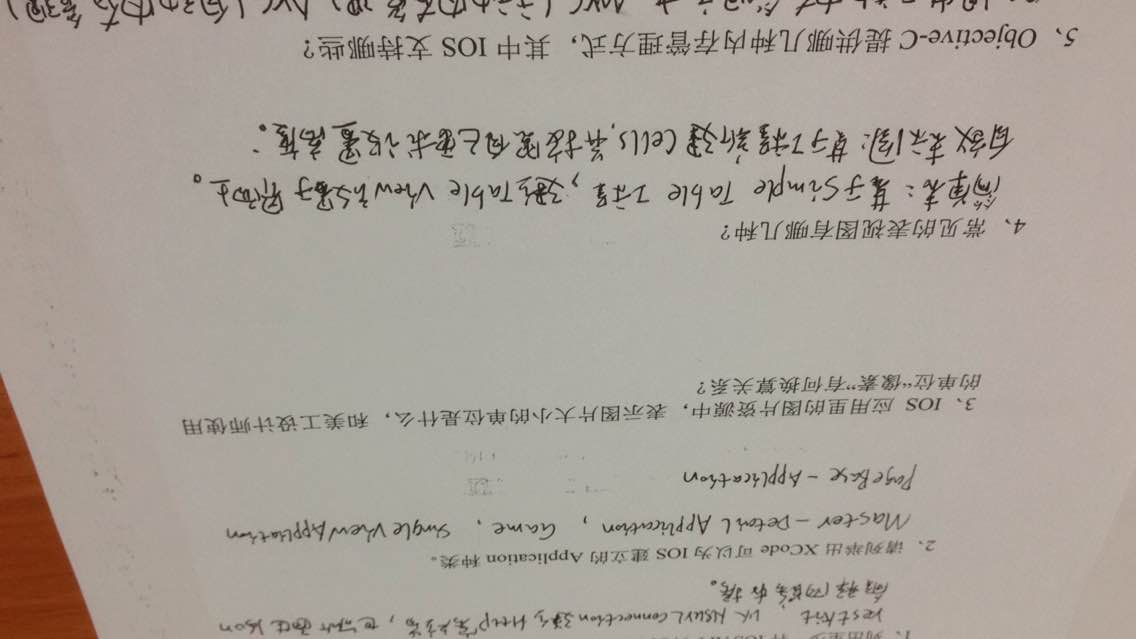 restkit 以 NSURL connection 建立 Http 客户端，也可 Json
解释网络数据。
2、请列举出 XCode 可以为 IOS 建立的 Application 种类。
Master-Detail Application，Game、Single View Application
Page Base-Application
3、IOS 应用里的图片资源中，表示图片大小的单位是什么，和美工设计师使用
的单位“像素”有何换算关系？
4、常见的表视图有哪几种？
简单表：基于 Simple Table 工程，建立 Table View 放置于 界面上。
自定义表示图：基于工程新建 Cells，并按照自己要求设置高度。
5、Objective-C 提供哪几种内存管理方式，其中 IOS 支持哪些？